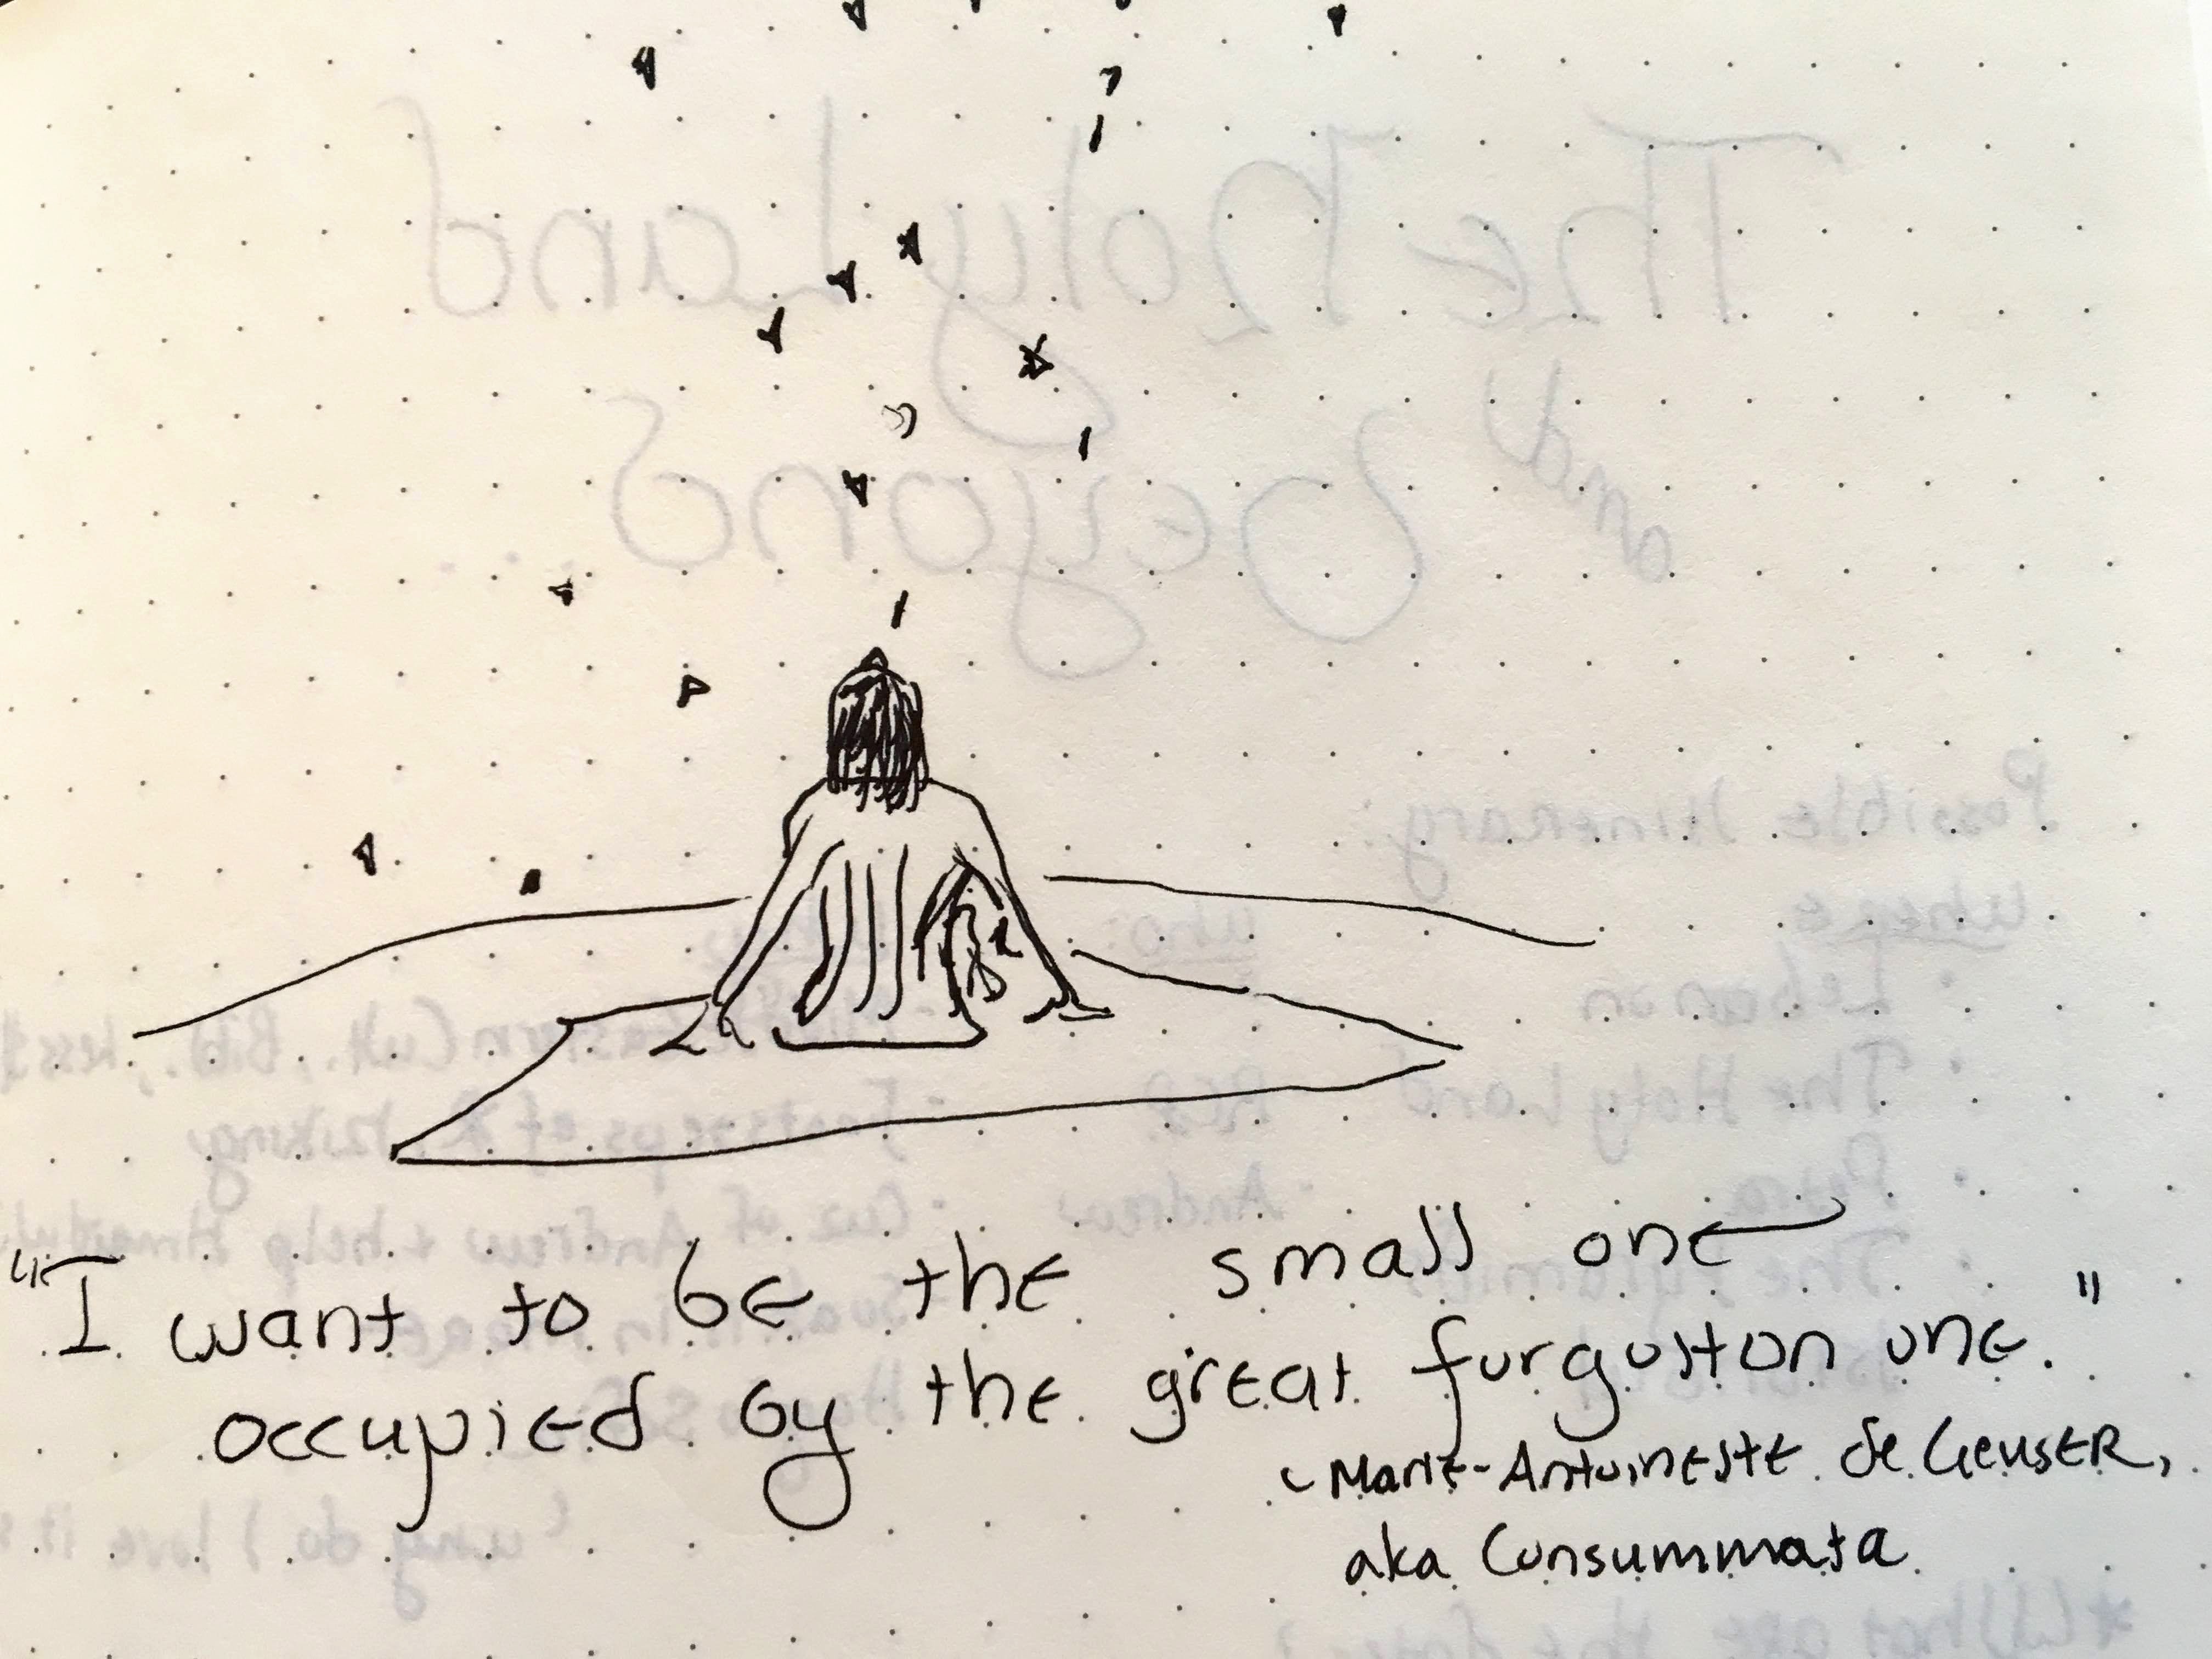 "I want to be the small one
occupied by the great forgotton one."
~ Marie-Antoinette de Geuser,
aka Consummata